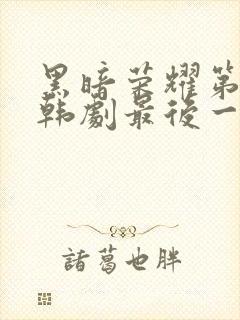 黑暗荣耀第
韩剧最后一
諸葛也胖